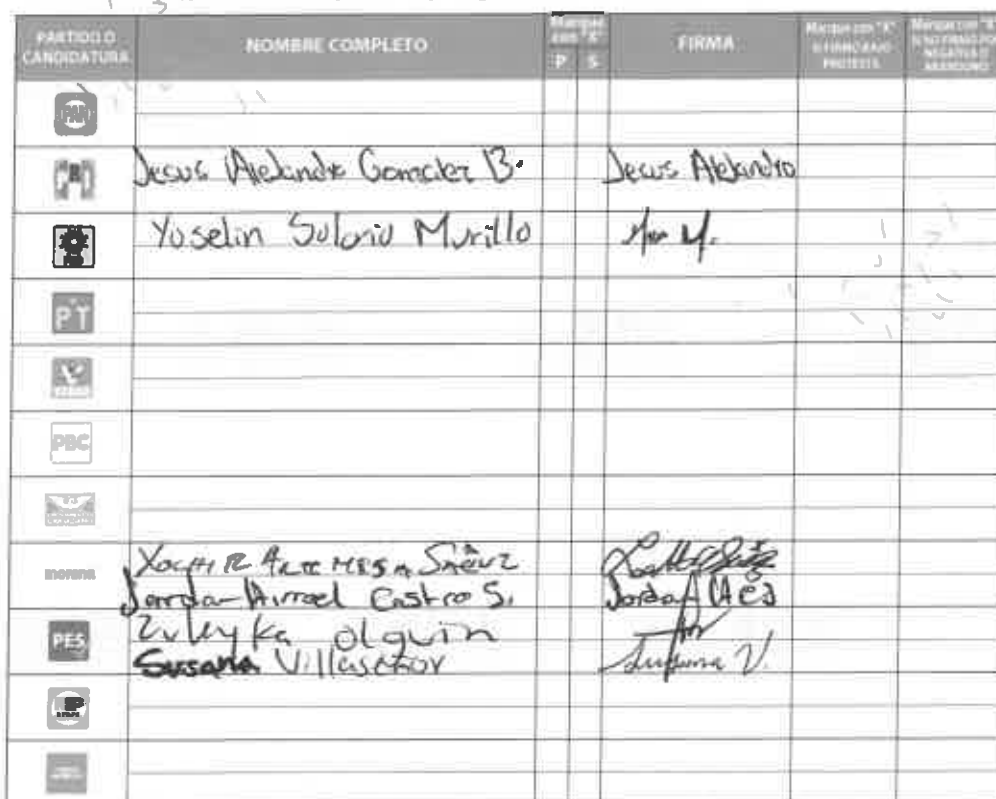 PARTIDO O CANDIDATURA
NOMBRE COMPLETO
Marque con "X"
P S
FIRMA
Marque con "X" SI FIRMÓ BAJO PROTESTA
Marque con "X" SI NO FIRMÓ POR NEGATIVA O ABANDONO
PAN
PRI
Jesus Alejandro Gonzalez B.
Jesus Alejandro
PRD
Yoselin Solorio Murillo
PT
VERDE
PBC
morena
Jordan Castro S.
Jordan
PES
Zuleyka Olguin
Susana Villaseñor
Susana V.